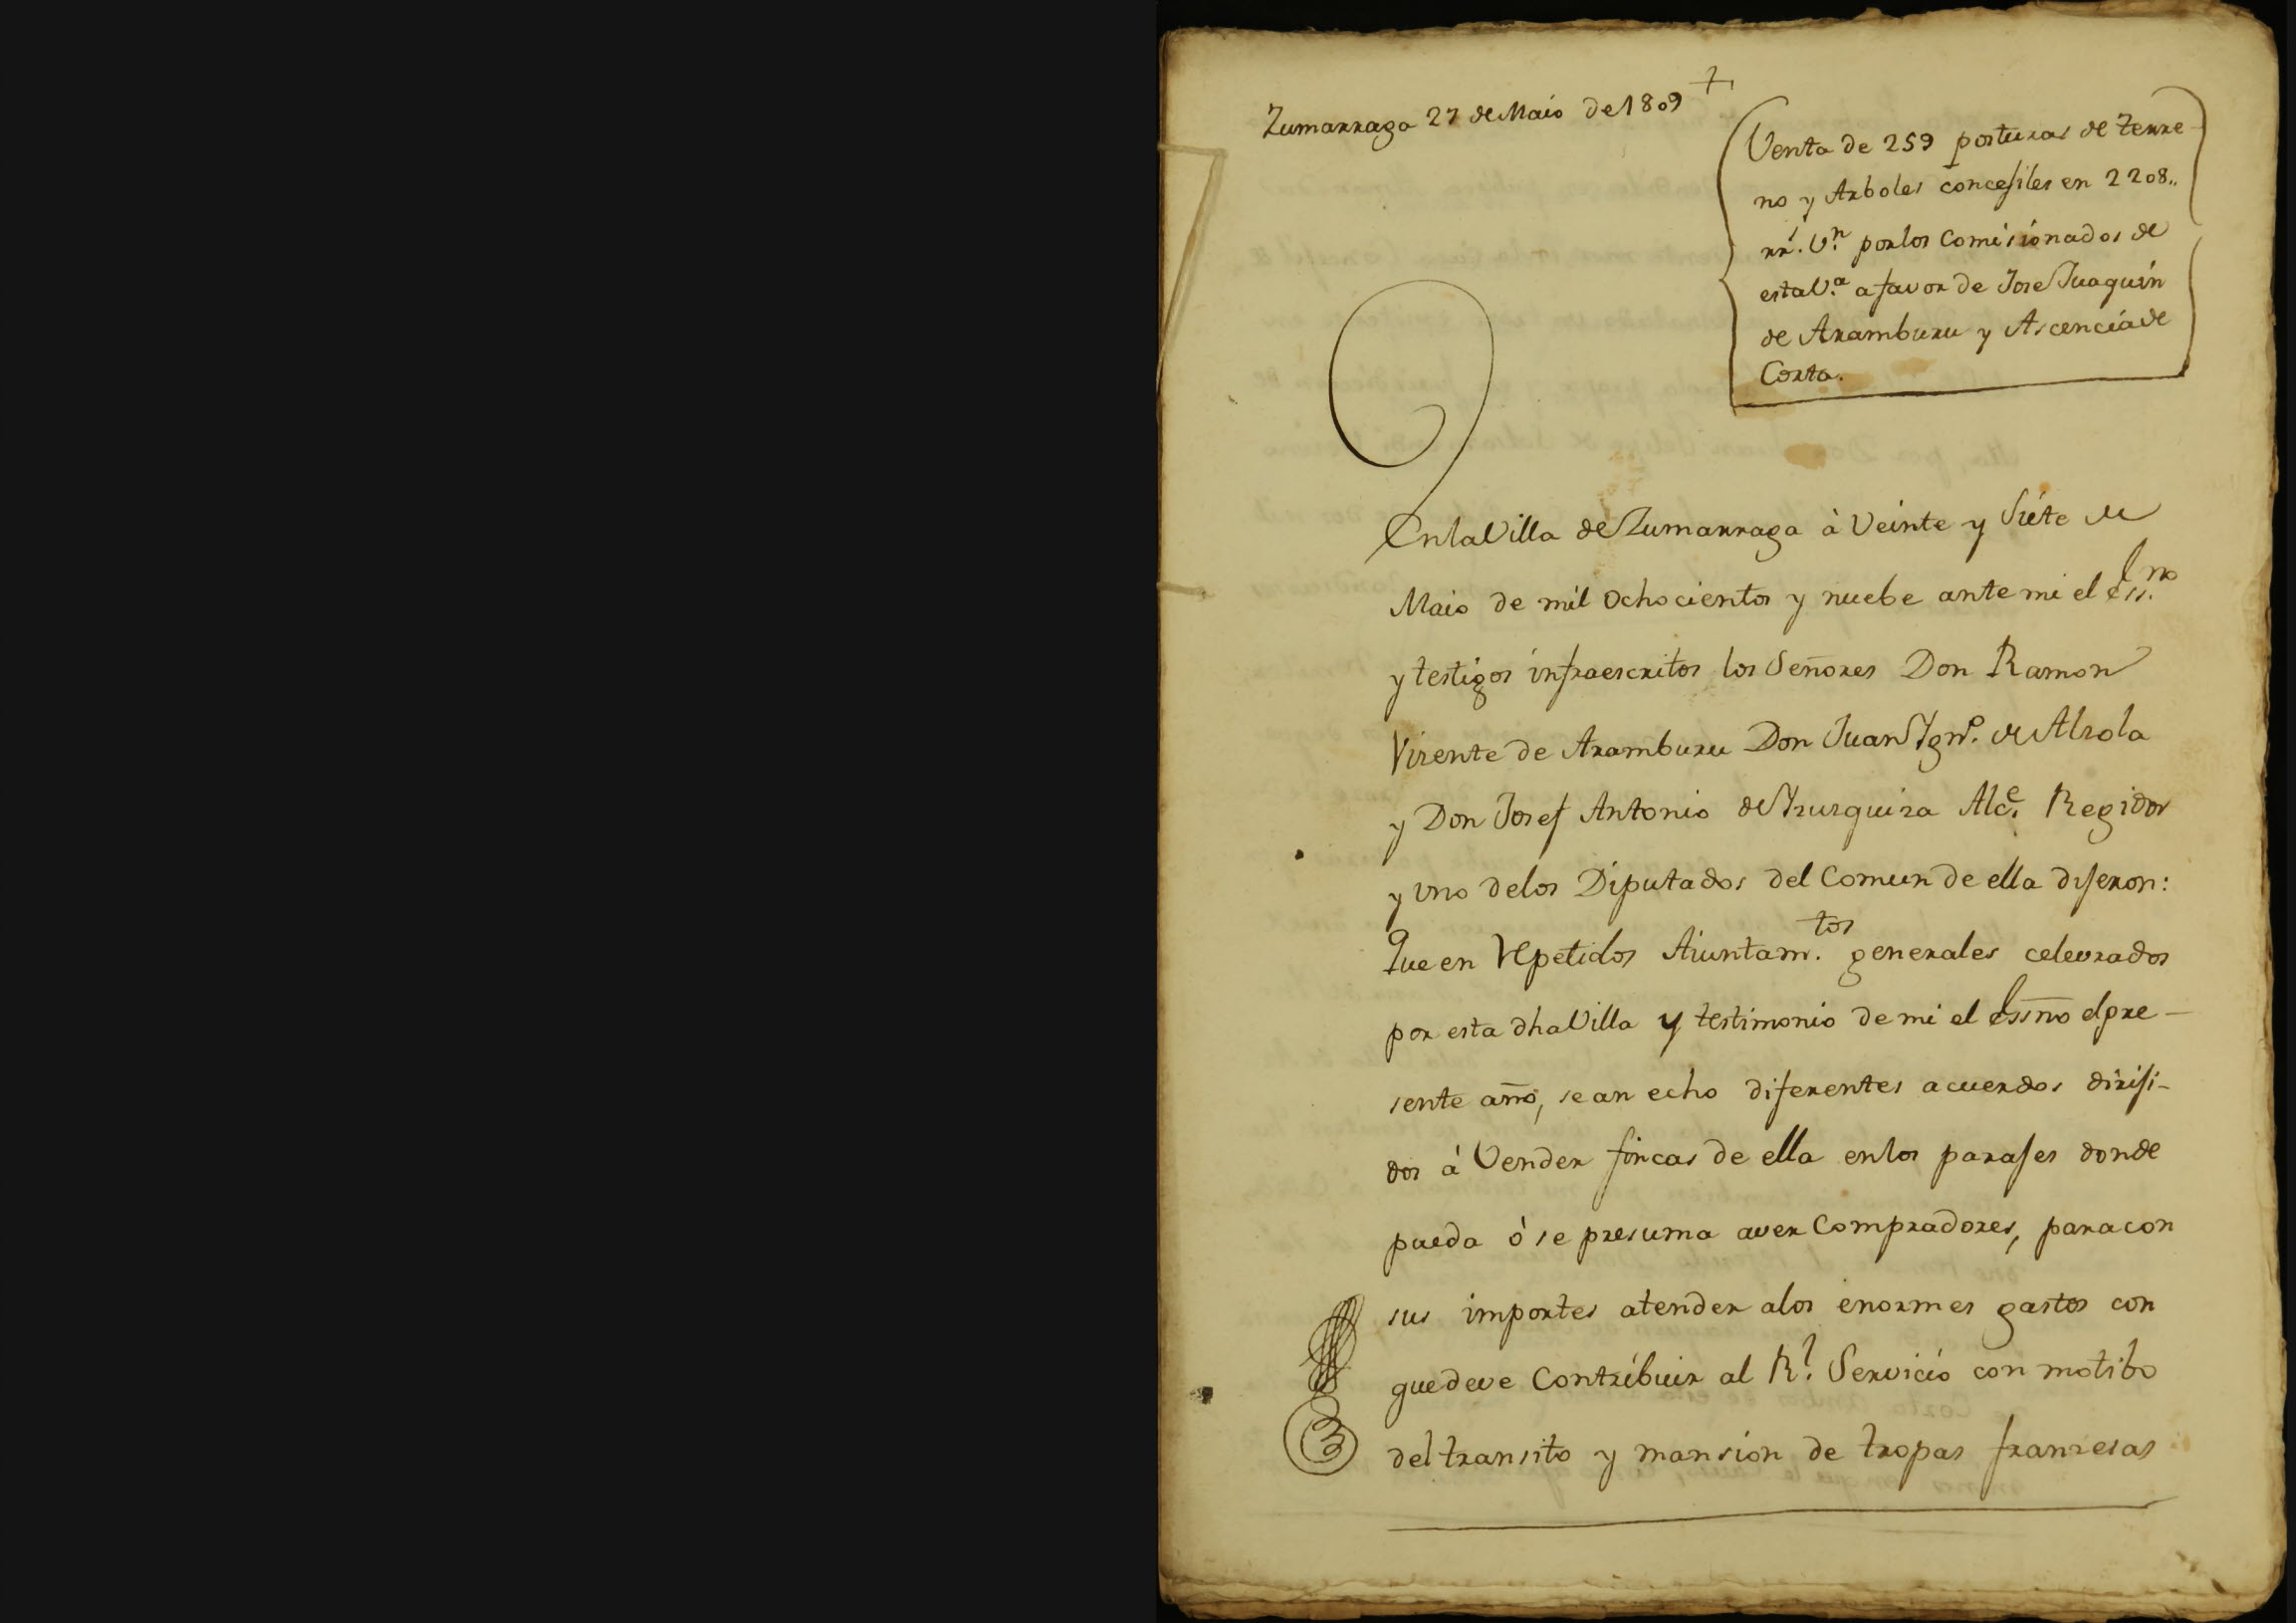 +
Zumarraga 27 de Maio de 1809
Venta de 259 posturas de terre-
no y Arboles concejiles en 2208..
rrs. Vn. por los Comisionados de
esta Va. a favor de Jose Juaquin
de Aramburu y Ascencia de
Corta.
En la Villa de Zumarraga à Veinte y Siete de
Maio de mil ochocientos y nuebe ante mi el Essno.
y testigos infraescritos los Señores Don Ramon
Vizente de Aramburu Don Juan Igno. de Alzola
y Don Josef Antonio de Yzuzquiza Alce. Regidor
y uno delos Diputados del Comun de ella dijeron:
Que en repetidos Aiuntamtos. generales celevrados
por esta dha Villa y testimonio de mi el Essno elpre-
sente año, se an echo diferentes acuerdos diriji-
dos à Vender fincas de ella enlos parajes donde
pueda ò se presuma aver Compradores, para con
sus importes atender alos enormes gastos con
que deve Contribuir al Rl. Servicio con motibo
del transito y mansion de tropas franzesas